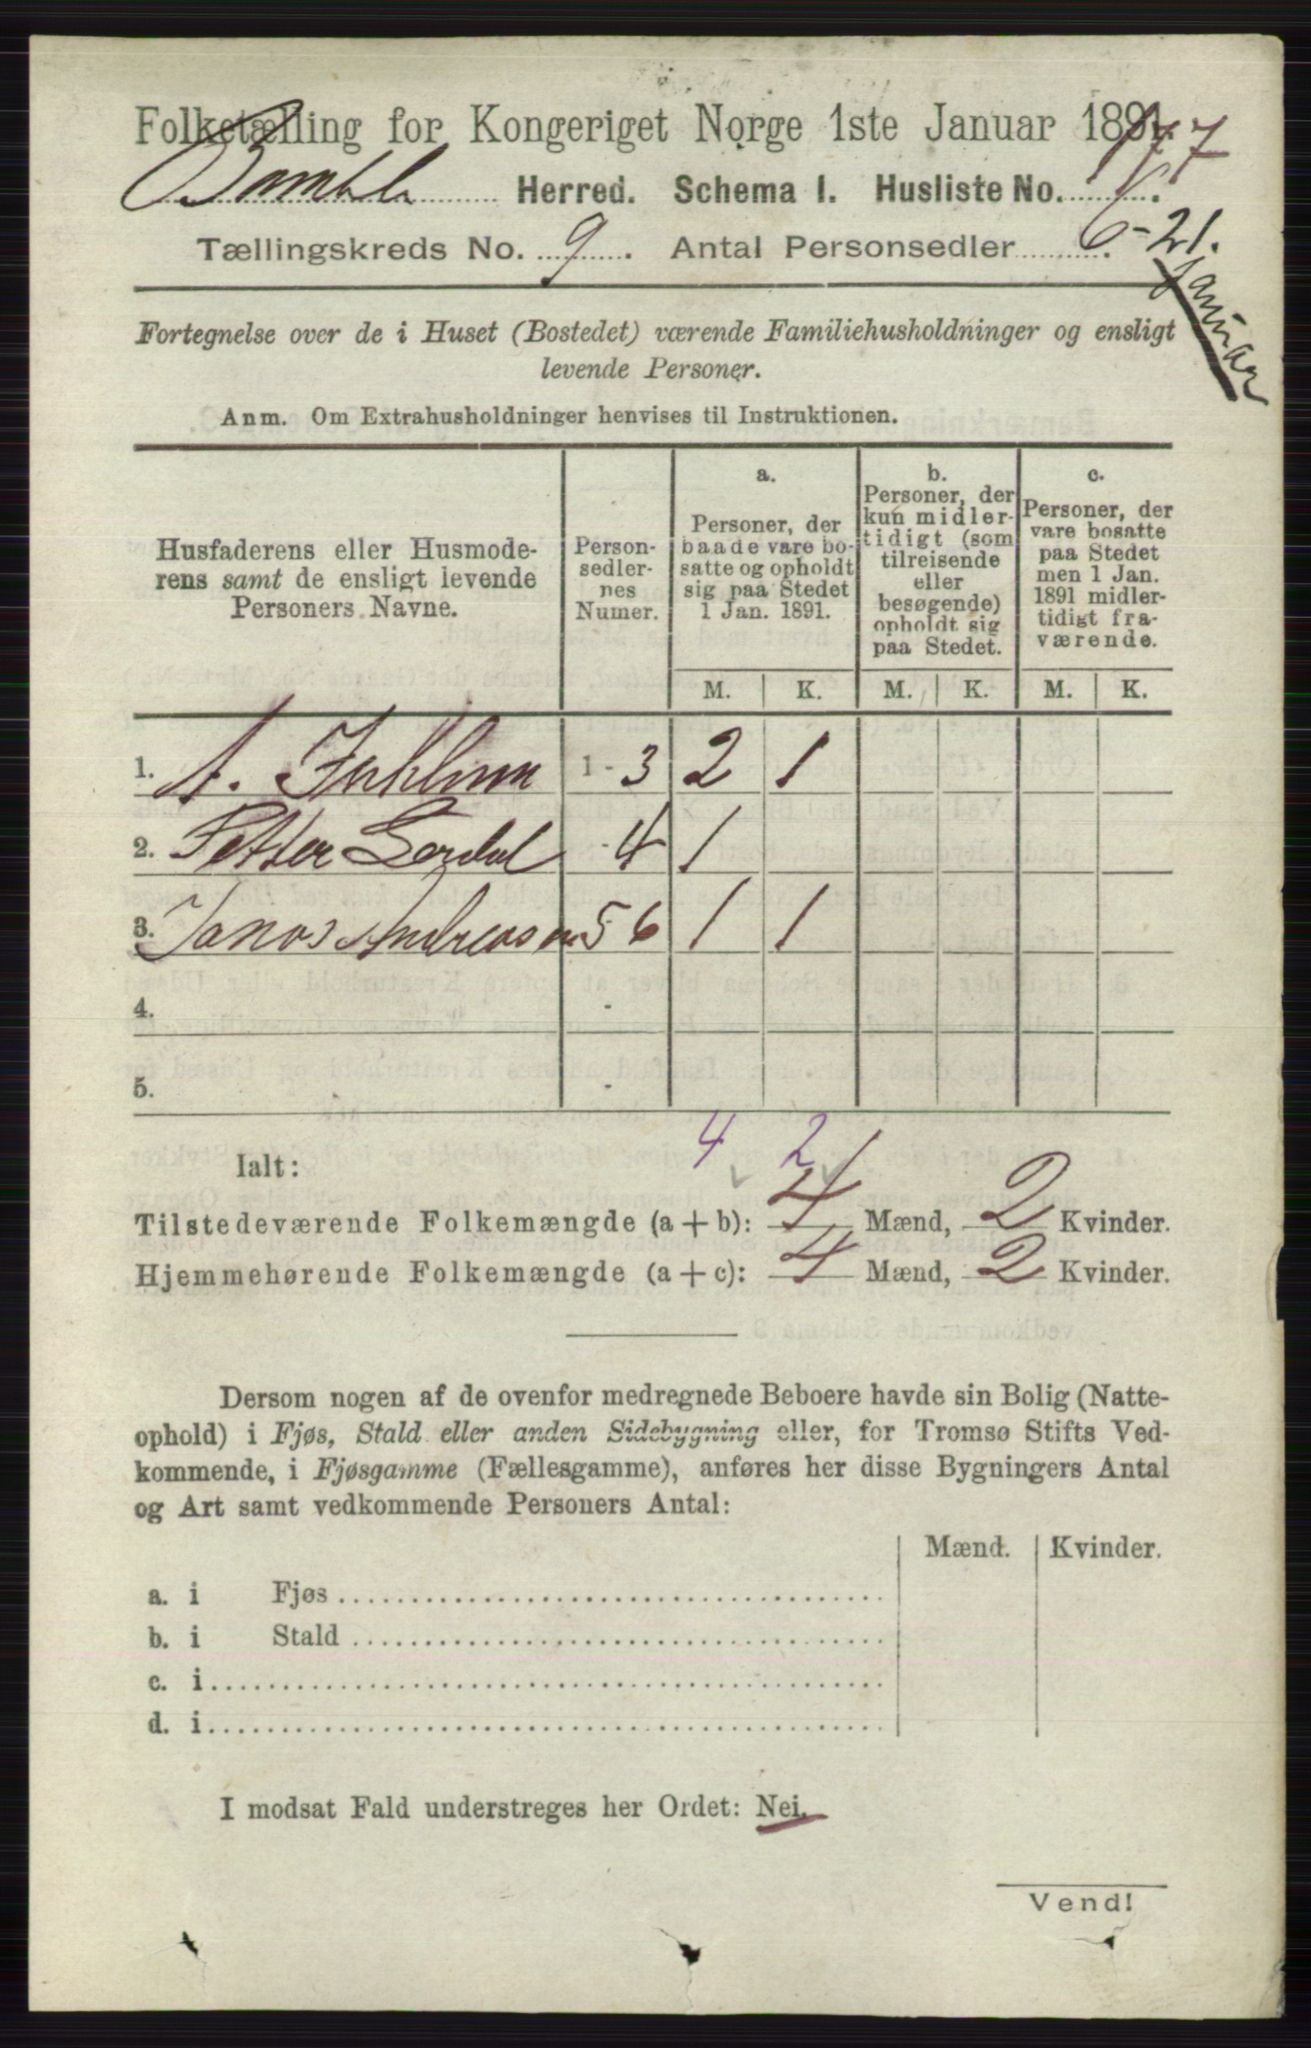 Folketælling for Kongeriget Norge 1ste Januar 1891.
177
Bamble Herred. Schema I. Husliste No.
Tællingskreds No. 9. Antal Personsedler 6-21.
Januar
Fortegnelse over de i Huset (Bostedet) værende Familiehusholdninger og ensligt
levende Personer.
Anm. Om Extrahusholdninger henvises til Instruktionen.
Husfaderens eller Husmode-
rens samt de ensligt levende
Personers Navne.
Person-
sedler-
nes
Numer.
a.
Personer, der
baade vare bo-
satte og opholdt
sig paa Stedet
1 Jan. 1891.
b.
Personer, der
kun midler-
tidigt (som
tilreisende
eller
besøgende)
opholdt sig
paa Stedet.
c.
Personer, der
vare bosatte
paa Stedet
men 1 Jan.
1891 midler-
tidigt fra-
værende.
M. K. M. K. M. K.
1. A. 1 - 3 2 1
2. Petter - 4 1
3. Andreasen 5 6 1 1
4. -
5. -
4 2
Ialt:
Tilstedeværende Folkemængde (a + b): 4 Mænd, 2 Kvinder.
Hjemmehørende Folkemængde (a + c): 4 Mænd, 2 Kvinder.
Dersom nogen af de ovenfor medregnede Beboere havde sin Bolig (Natte-
ophold) i Fjøs, Stald eller anden Sidebygning eller, for Tromsø Stifts Ved-
kommende, i Fjøsgamme (Fællesgamme), anføres her disse Bygningers Antal
og Art samt vedkommende Personers Antal:
Mænd. Kvinder.
a. i Fjøs
b. i Stald
c. i
d. i
I modsat Fald understreges her Ordet: Nei.
Vend!